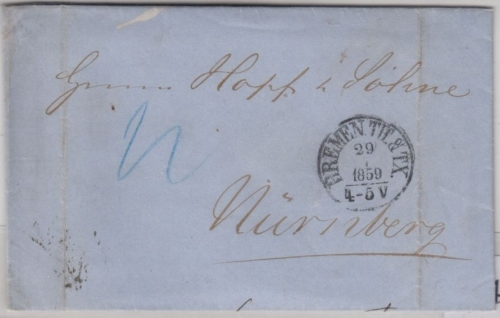 Herren Hopf & Söhne
BREMEN. TH. & TX
29
1
1859
4-5 V
Nürnberg